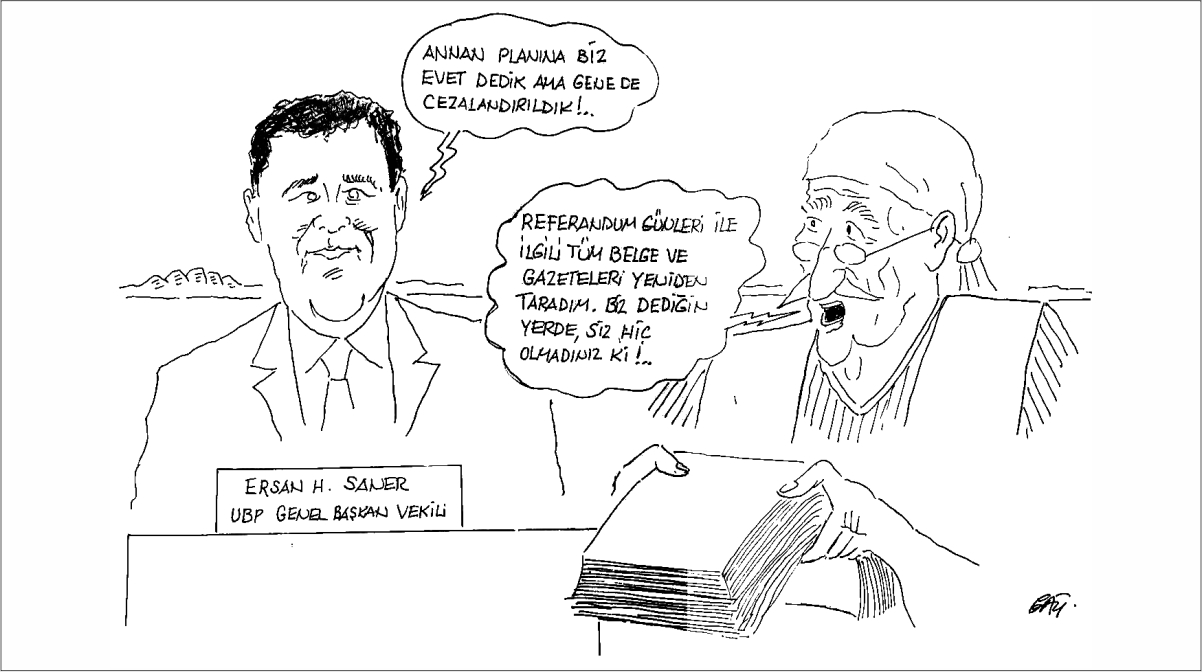 ANNAN PLANINA BİZ
EVET DEDİK AMA GENE DE
CEZALANDIRILDIK!..
REFERANDUM GÜNLERİ İLE
İLGİLİ TÜM BELGE VE
GAZETELERİ YENİDEN
TARADIM. BİZ DEDİĞİN
YERDE, SİZ HİÇ
OLMADINIZ Kİ!..
ERSAN H. SANER
UBP GENEL BAŞKAN VEKİLİ